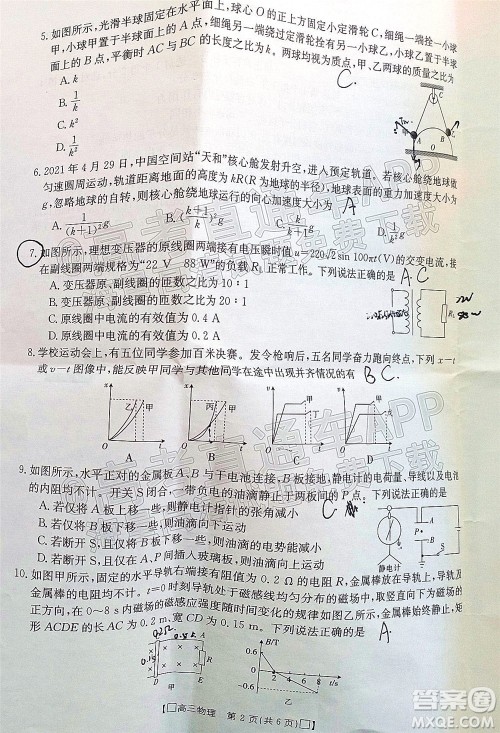 5. 如图所示，光滑半球固定在水平面上，球心 O 的正上方固定小定滑轮 C，细绳一端拴一小球
甲，小球甲置于半球面上的 A 点，细绳另一端绕过定滑轮后拴有另一小球乙，小球乙处于半球
面上的 B 点，平衡时 AC 与 BC 的长度之比为 k(k>1)。两球均视为质点，甲、乙两球的质量之比为
C.
A. k
B. 1/k
C. k²
D. 1/k²
C
A
B
O
6. 2021 年 4 月 29 日，中国空间站“天和”核心舱发射升空，进入预定轨道。若核心舱绕地球做
匀速圆周运动，轨道距离地面的高度为 kR(R 为地球的半径)，地球表面的重力加速度大小为
g，忽略地球的自转，则核心舱绕地球运行的向心加速度大小为 A
A. 1/(k+1)² g
B. (k/(k+1))² g
C. 1/(k+1) g
D. 1/k² g
7. 如图所示，理想变压器的原线圈两端接有电压瞬时值 u=220√2 sin 100πt(V) 的交变电流，接
在副线圈两端规格为“22 V　88 W”的负载 R_L 正常工作。下列说法正确的是 A C
A. 变压器原、副线圈的匝数之比为 10∶1
B. 变压器原、副线圈的匝数之比为 20∶1
C. 原线圈中电流的有效值为 0.4 A
D. 原线圈中电流的有效值为 0.2 A
8. 学校运动会上，有五位同学参加百米决赛。发令枪响后，五名同学奋力跑向终点，下列 x－t
或 v－t 图像中，能反映甲同学与其他同学在途中出现并齐情况的有 B C.
A B C D
9. 如图所示，水平正对的金属板 A、B 与干电池连接，静电计的电荷量、导线以及电池
的内阻均不计。开关 S 闭合时，一带负电的油滴静止于两板间的 P 点。下列说法正确的是
A. 若仅将 A 板上移一些，则静电计指针的张角减小
B. 若仅将 B 板下移一些，则油滴向下运动
C. 若断开 S，且仅将 B 板下移一些，则油滴向下运动
D. 若断开 S，且仅在 A、B 板间插入玻璃板，则油滴向下运动
静电计
10. 如图甲所示，固定的水平导轨右端接有阻值为 0.2 Ω 的电阻 R，金属棒放在导轨上，导轨及
金属棒的电阻均不计。t=0 时刻导轨处于磁感线均匀分布的磁场中，取竖直向下为磁场的正
方向，在 0～8 s 内磁场的磁感应强度随时间变化的规律如图乙所示，金属棒始终静止，矩
形 ACDE 的长 AC 为 0.2 m，宽 CD 为 0.15 m。下列说法正确的是 A.
B/T
0.6
0
-0.6
2 4 6 8 t/s
甲
乙
【高三物理　第 2 页(共 6 页)】
高考直通车APP
免费下载
答案圈
MXQE.COM